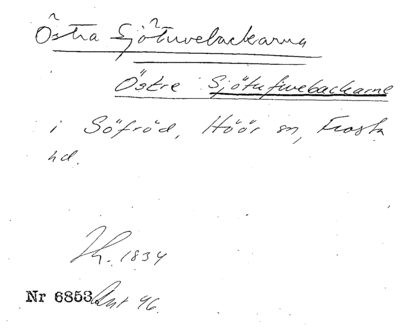 Östra Sjötuvebackarna
Östre Sjötufvebackarne
i Söfröd, Höör sn, Frosta
hd.
1834
Nr 6853 Akt 96.